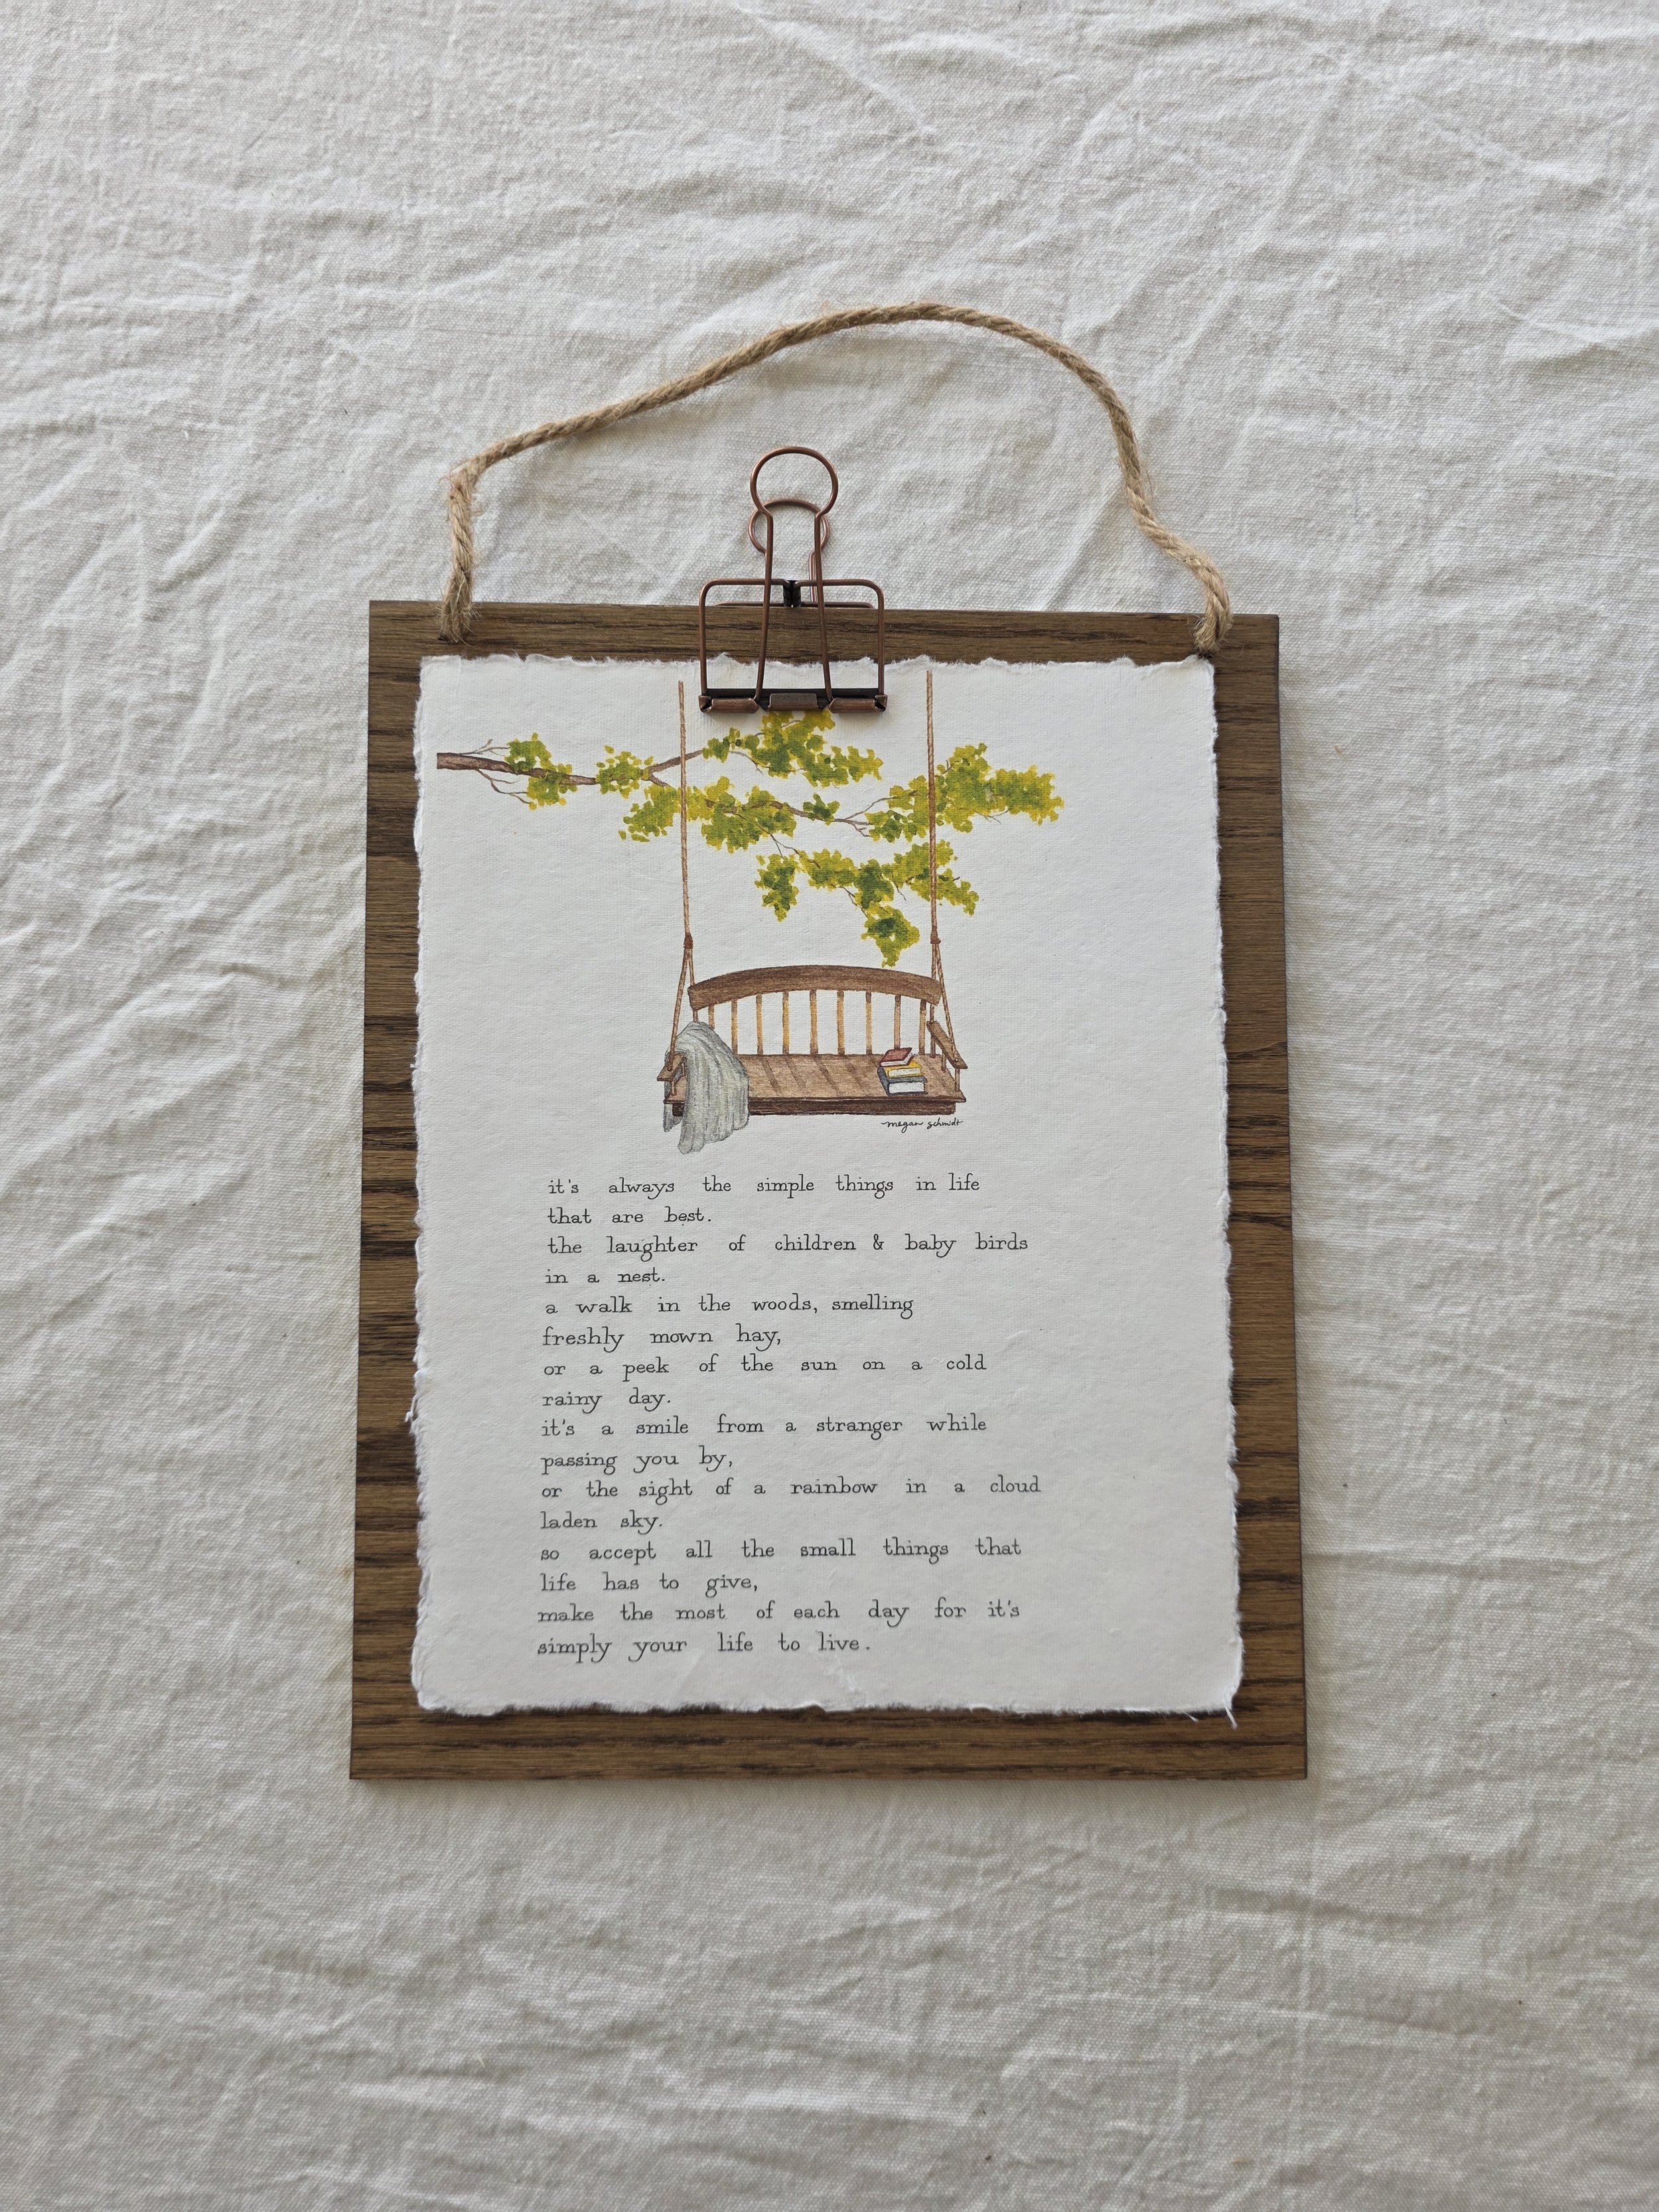 megan schmidt
it's always the simple things in life
that are best.
the laughter of children & baby birds
in a nest.
a walk in the woods, smelling
freshly mown hay,
or a peek of the sun on a cold
rainy day.
it's a smile from a stranger while
passing you by,
or the sight of a rainbow in a cloud
laden sky.
so accept all the small things that
life has to give,
make the most of each day for it's
simply your life to live.